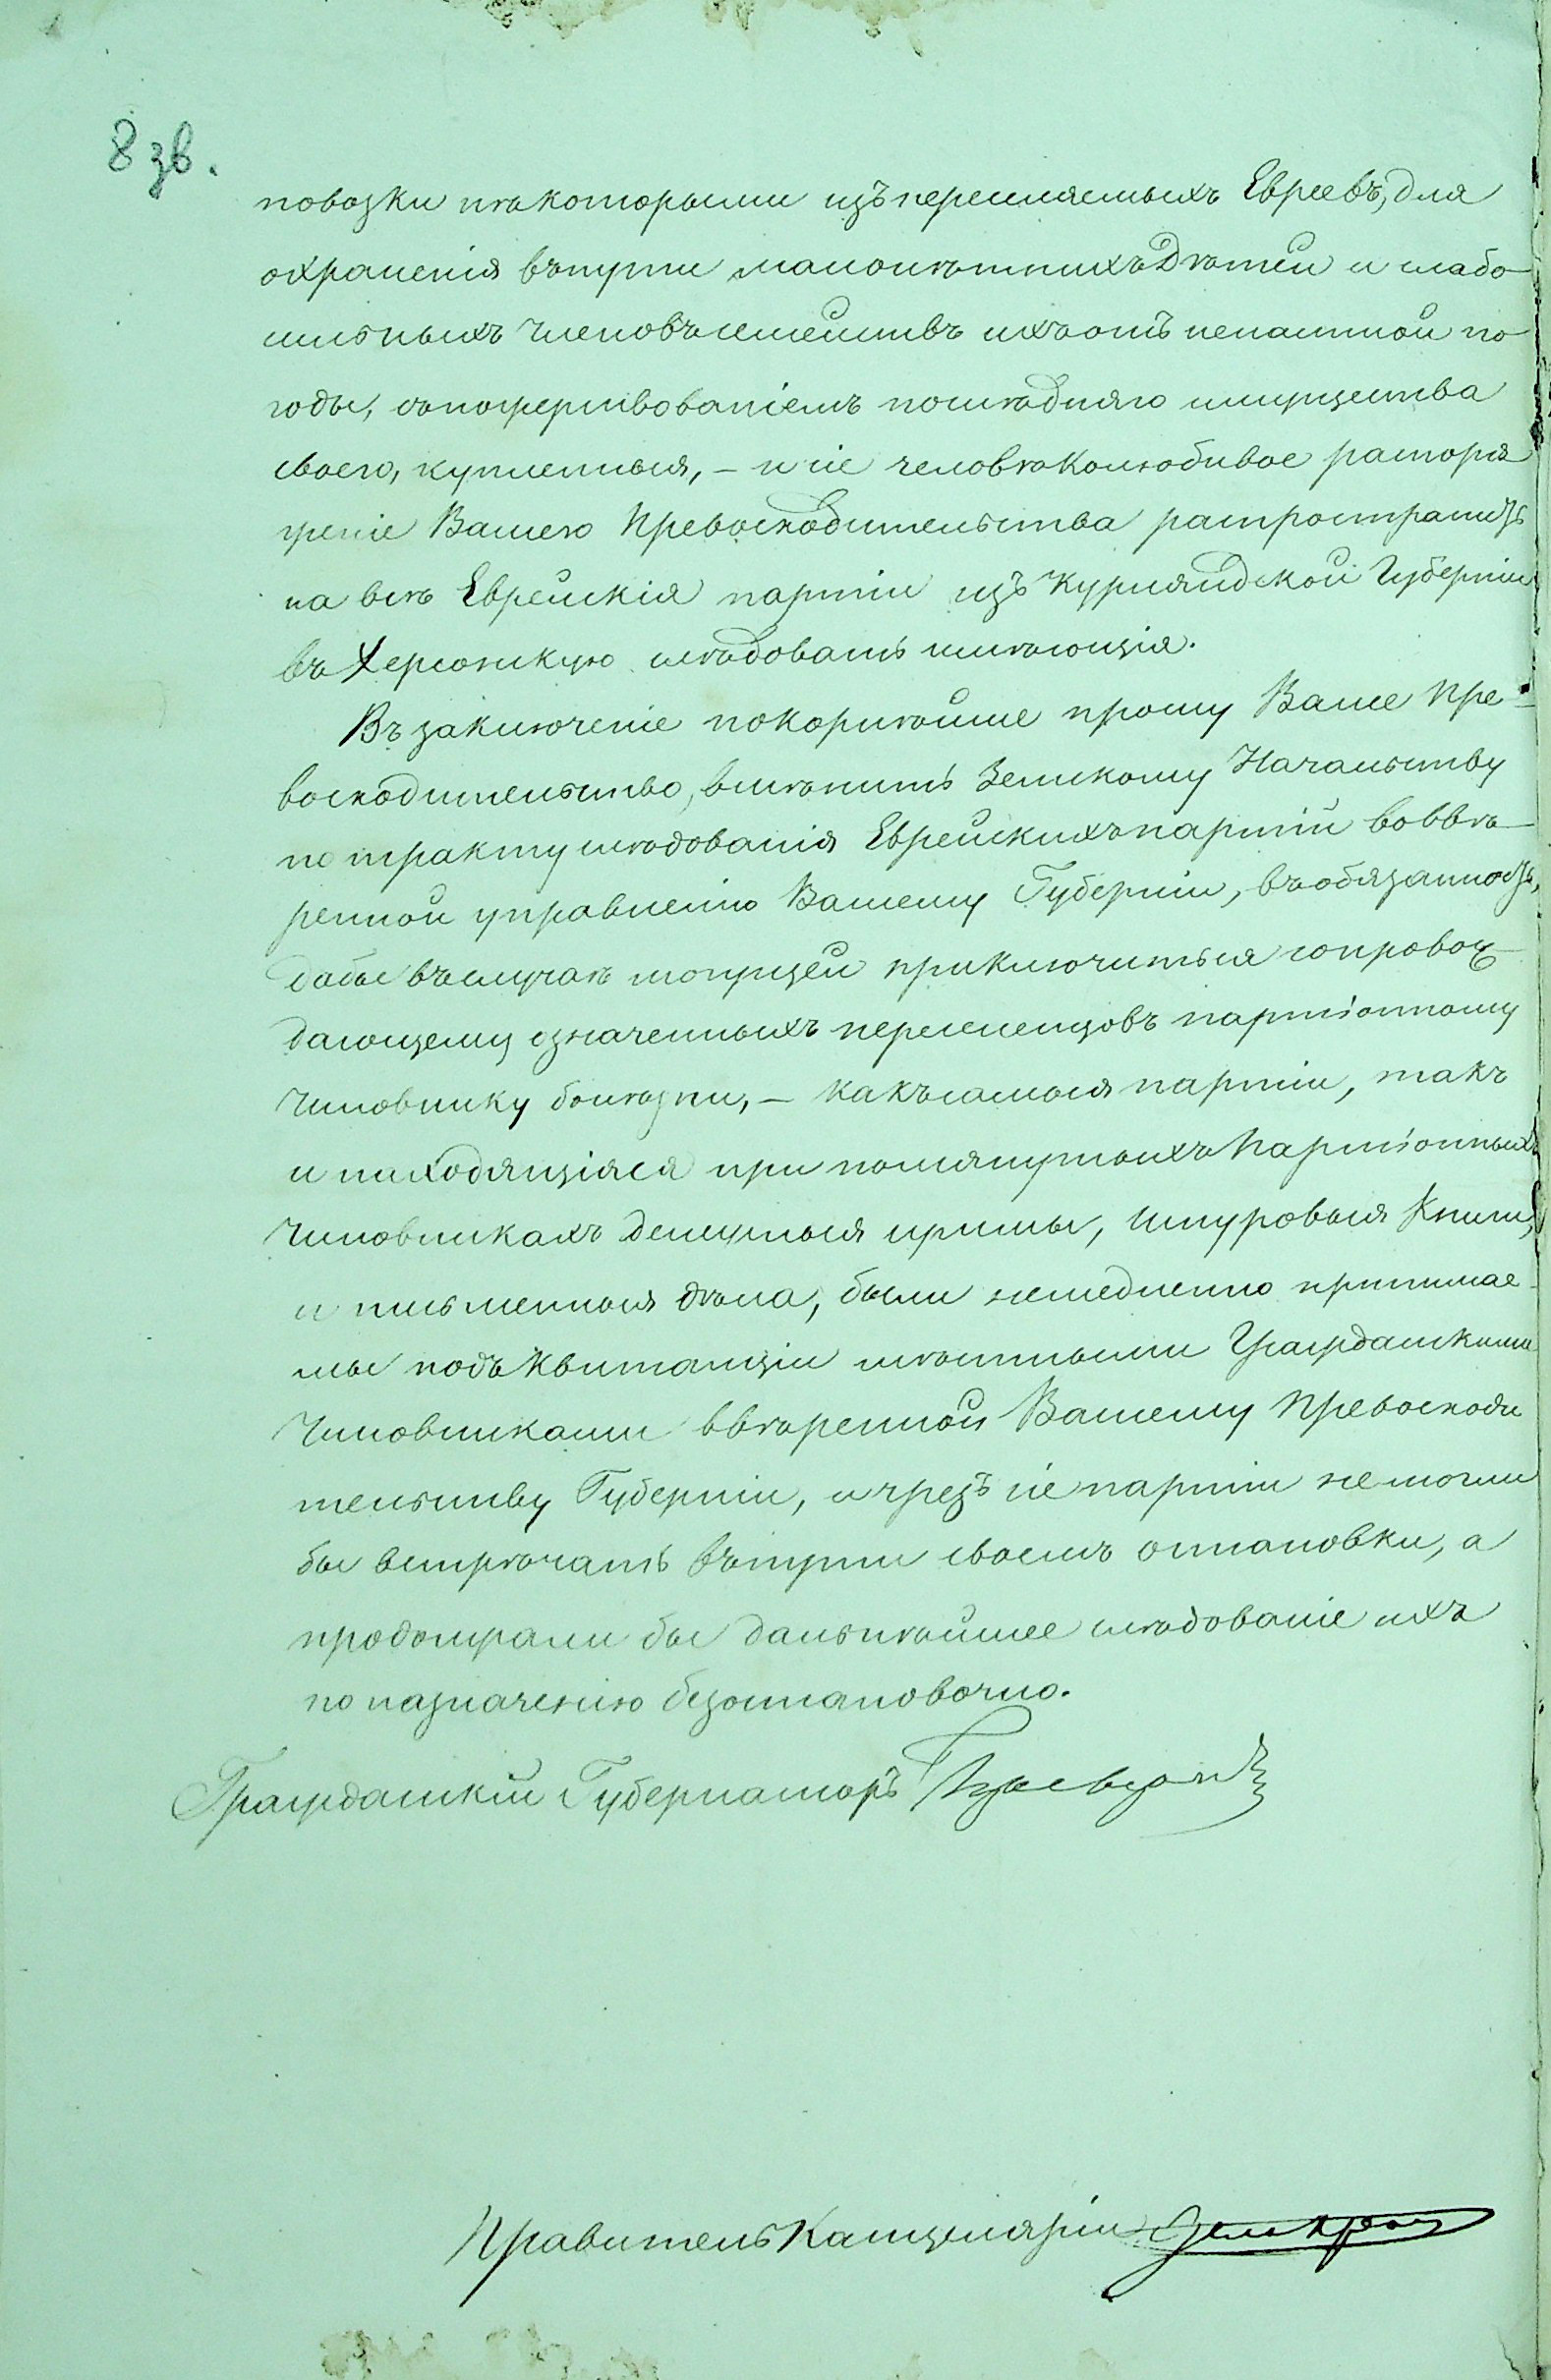 8 зв.
повозки нѣкоторыми изъ переселяемыхъ Евреевъ, для
охраненія въ пути малолѣтнихъ Дѣтей и слабо-
сильныхъ членовъ семействъ ихъ отъ ненастной по-
годы, съ пожертвованіемъ послѣдняго имущества
своего, купленныя, – и сіе человѣколюбивое распоря
женіе Вашего Превосходительства распространить
на всѣ Еврейскія партіи изъ Курляндской Губерніи
въ Херсонскую слѣдовать имѣющія.
Въ заключеніе покорнѣйше прошу Ваше Пре-
восходительство, вмѣнить Земскому Начальству
по тракту слѣдованія Еврейскихъ партій во ввѣ-
ренной управленію Вашему Губерніи, въ обязанность,
дабы въ случаѣ могущей приключиться сопровож-
дающему означенныхъ переселенцовъ партіонному
Чиновнику болѣзни, – какъ самыя партіи, такъ
и находящіяся при помянутыхъ Партіонныхъ
Чиновникахъ денежныя суммы, шнуровыя Книги,
и письменныя дѣла, были немедленно принимае-
мы подъ Квитанціи мѣстными Гражданскими
Чиновниками ввѣренной Вашему Превосходи
тельству Губерніи, и чрезъ сіе партіи не могли
бы встрѣчать въ пути своемъ остановки, а
продолжали бы дальнѣйшее слѣдованіе ихъ
по назначенію безостановочно.
Гражданскій Губернаторъ
Правитель Канцеляріи